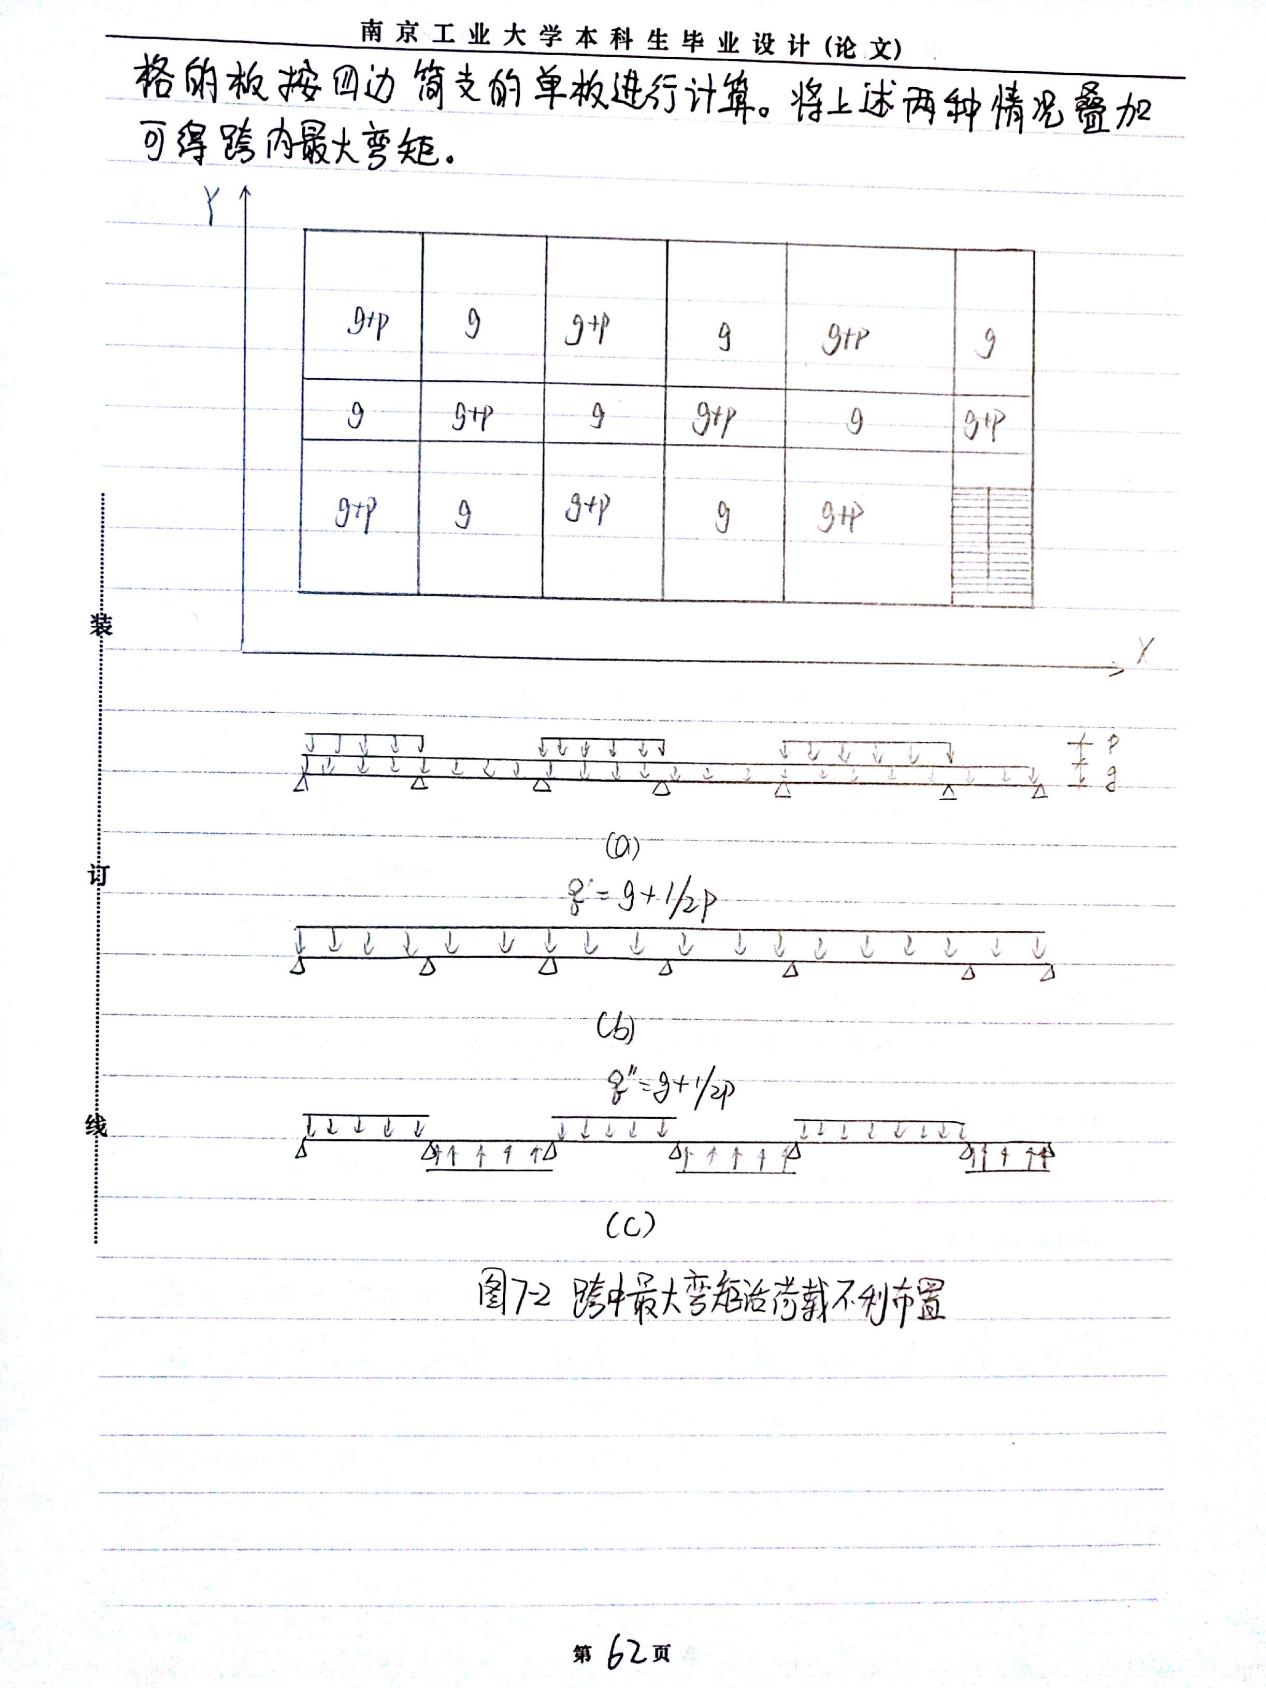 南京工业大学本科生毕业设计(论文)
格的板按四边简支的单板进行计算。将上述两种情况叠加
可得跨内最大弯矩。
Y
g+p g g+p g g+p g
g g+p g g+p g g+p
g+p g g+p g g+p
X
p
g
(a)
q'=g+1/2p
(b)
q"=g+1/2p
(c)
图7-2 跨中最大弯矩活荷载不利布置
装
订
线
第62页